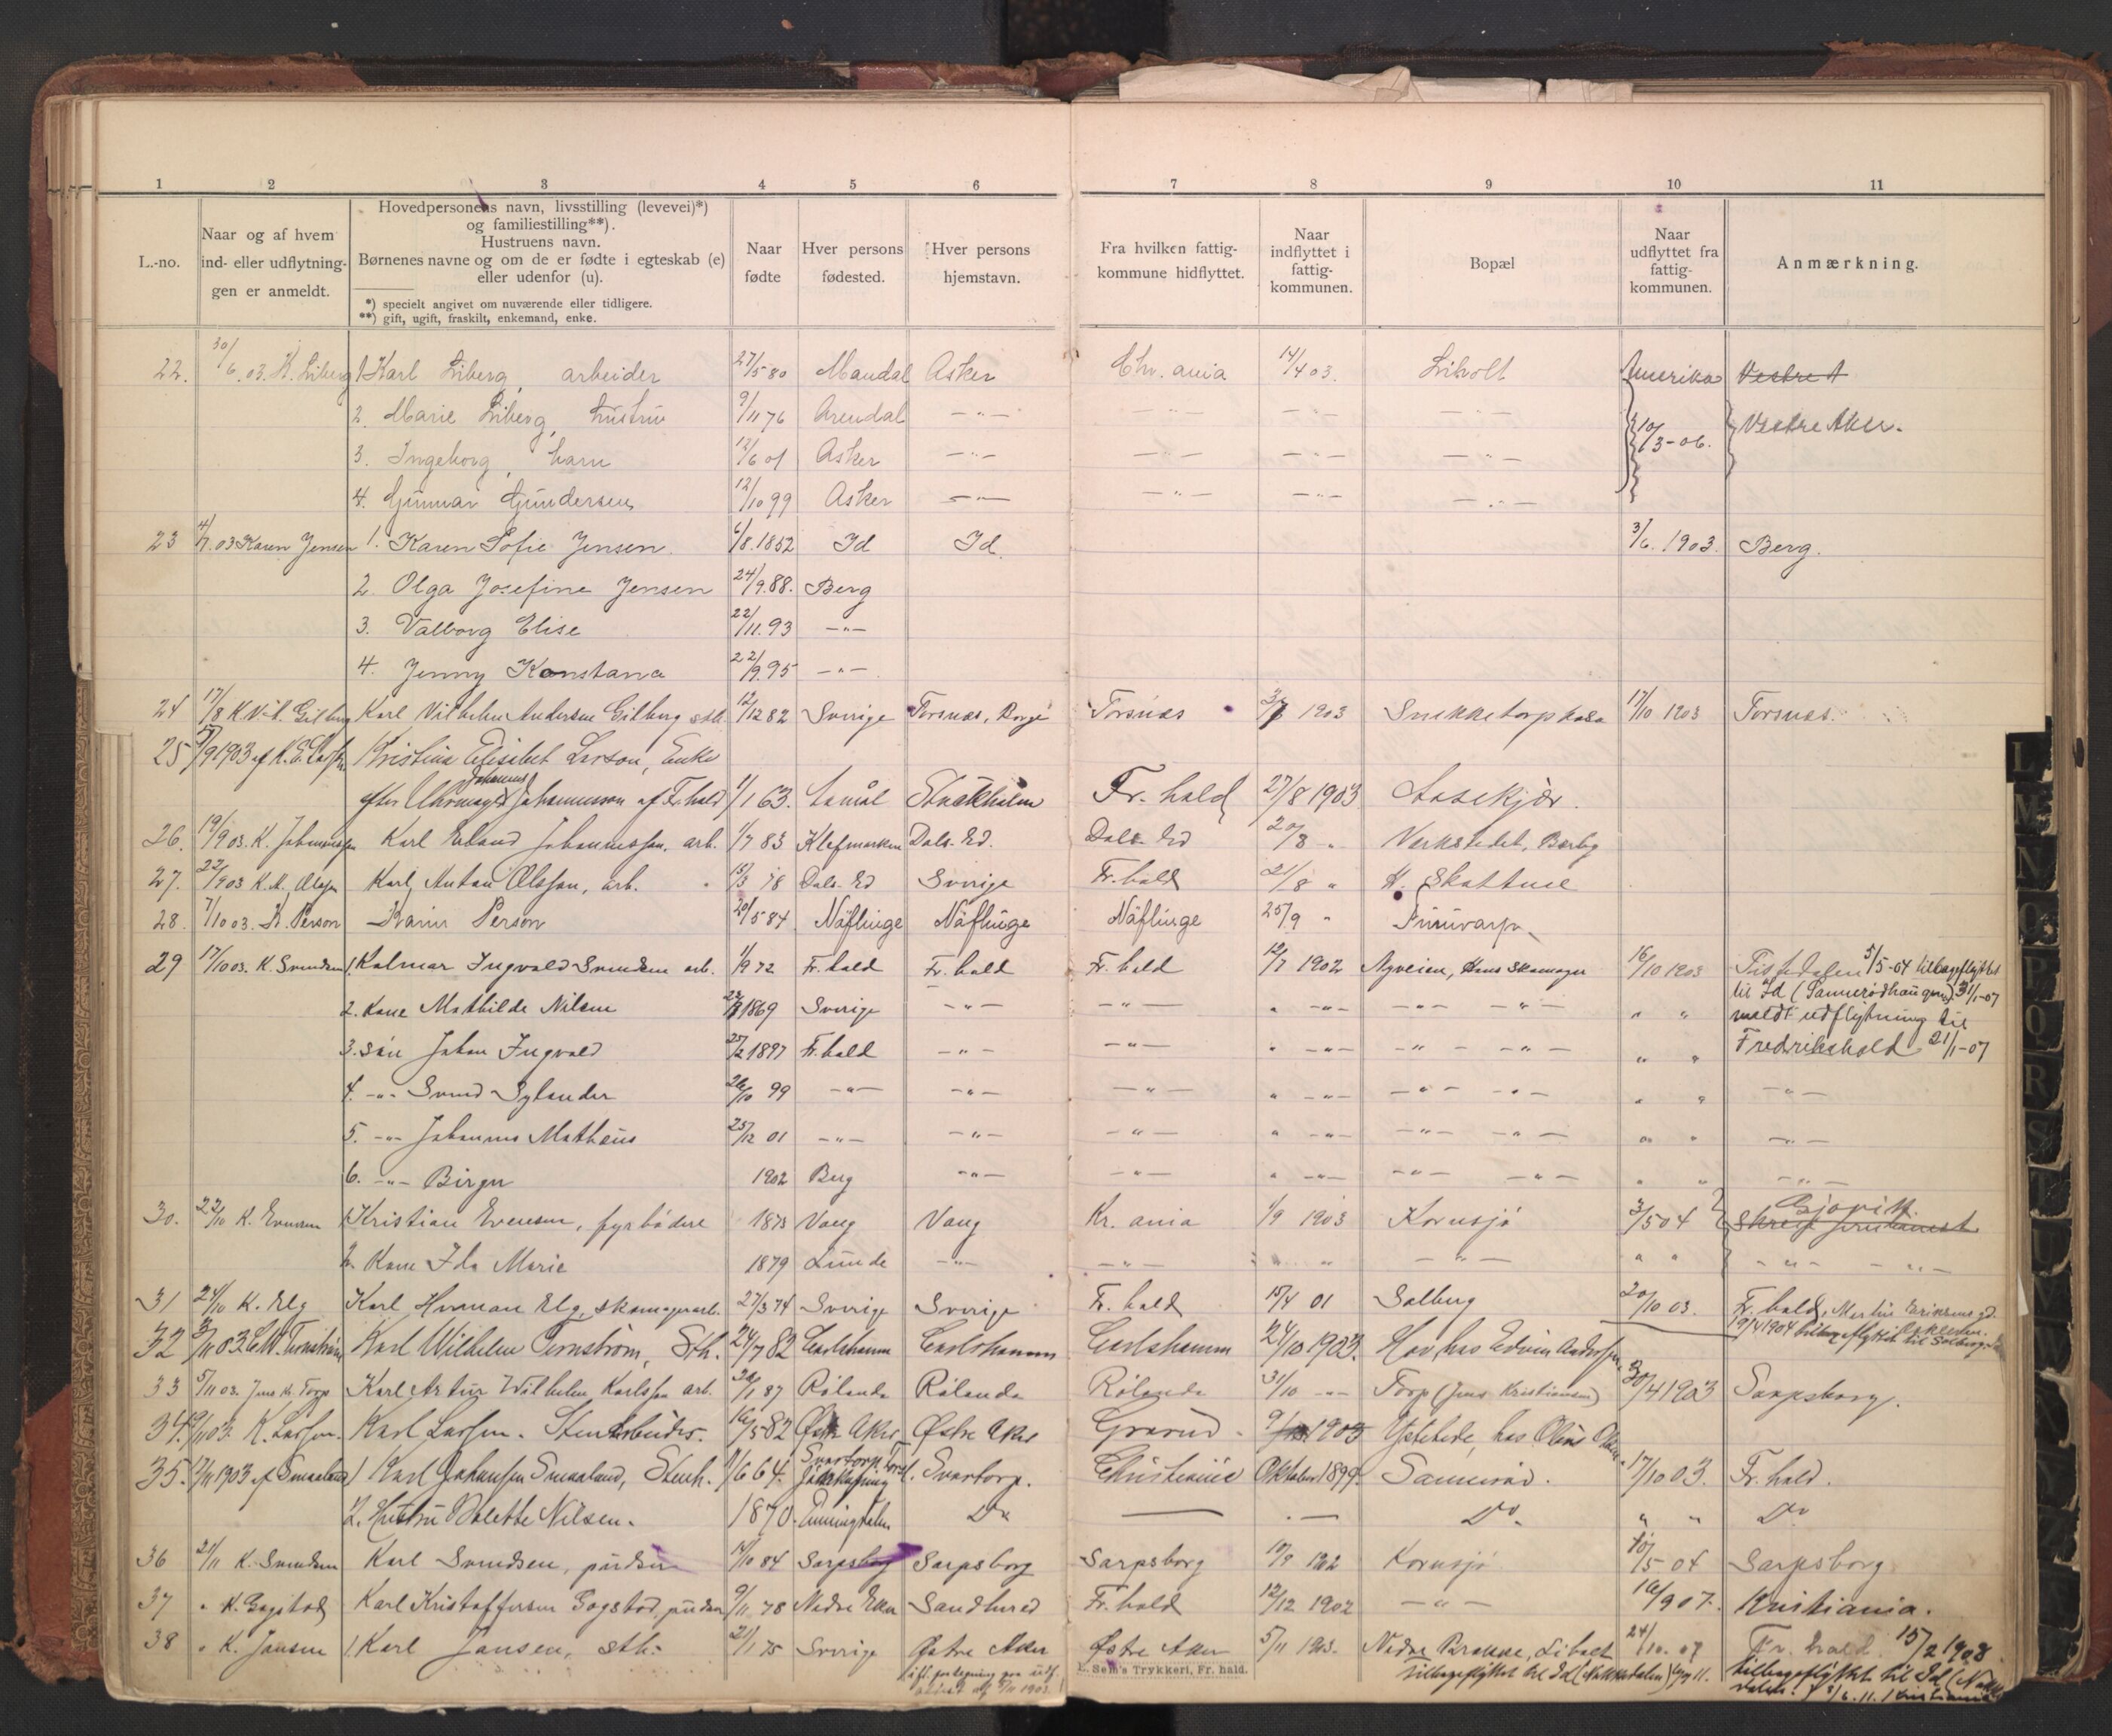 1 2 3 4 5 6 7 8 9 10 11
L.-no.
Naar og af hvem
ind- eller udflytnin-
gen er anmeldt.
Hovedpersonens navn, livsstilling (levevei)*)
og familiestilling**).
Hustruens navn.
Børnenes navne og om de er fødte i egteskab (e)
eller udenfor (u).
*) specielt angivet om nuværende eller tidligere.
**) gift, ugift, fraskilt, enkemand, enke.
Naar
fødte
Hver persons
fødested.
Hver persons
hjemstavn.
Fra hvilken fattig-
kommune hidflyttet.
Naar
indflyttet i
fattig-
kommunen.
Bopæl
Naar
udflyttet fra
fattig-
kommunen.
Anmærkning.
22. 30/6.03. K. Liberg 1 Karl Liberg, arbeider 27/5 80 Mandal Asker Chr.ania 14/4 03. Liholt Amerika Vestre A
2. Marie Liberg, hustru 9/11 76 Arendal —"— —"— —"— —"— 10/3-06. Vestre Aker.
3. Ingeborg, barn 12/6 01 Asker —"— —"— —"— —"—
4. Gunnar Gundersen 12/10 99 Asker —"— —"— —"— —"—
23 4/7.03 Karen Jensen 1. Karen Sofie Jensen. 6/8.1852 Id Id. 3/6.1903. Berg.
2. Olga Josefine Jensen 24/9.88. Berg
3. Valborg Elise 22/11.93 —"—
4. Jenny Konstana 22/9.95 —"—
24 17/8 K. Vil. Gilberg Karl Vilhelm Andersen Gilberg sth. 12/12 82 Sverige Torsnæs, Borge Torsnæs 1903 Snekketorp 17/10 1903 Torsnæs.
25 1903 af K. E. Larson Kristina Elisabet Larson, Enke
efter Johannes Johannesson af Fr.hald 1/1 63. Åmål Stockholm Fr. hald 27/8 1903 Aasekjær.
26. 19/9 03. K. Johannessen Karl Erland Johannesson, arb. 1/7 83 Klefmarken Dals. Ed. Dals. Ed 20/8 " Verkstedet, Berby
27. 22/9 03 K. A. Olsson Karl Anton Olsson, arb. 13/3 78 Dals. Ed Sverige Fr. hald 21/8 " K. Skattue
28. 7/10 03. K. Person Karin Person 20/5 84 Näflinge Näflinge Näflinge 25/9 "
29 17/10 03. K. Svendsen 1. Kalmar Ingvald Svendsen arb. 1/9 72 Fr. hald Fr. hald Fr. hald 12/7 1902 Nyveien, Hans Skomager 16/10 1903 Tistedalen 5/5-04 tilbageflyttet
2. Kone Mathilde Nilsen 1869 Sverige —"— —"— " —"— —"— —"— " " til Id (Sannerødhaugen) 31/1-07
meldt udflytning til
3. Søn Johan Ingvald 25/2 1897 Fr. hald —"— —"— " —"— —"— —"— " " Fredrikshald 21/1-07
4. —"— Svend Sylander 26/10 99 —"— —"— —"— " —"— —"— —"— " " —"—
5. —"— Johannes Mathæus 25/12 01 —"— —"— —"— " —"— —"— —"— " " —"—
6. —"— Birger 1902 Berg —"— —"— " —"— —"— —"— " " —"—
30. 22/10 K. Evensen 1 Kristian Evensen, fyrbøder 1873 Vang Vang Kr. ania 1/9 1903 Kornsjø 3/5 04 Gjøvik.
2. Kone Ida Marie 1879 Lunde —"— —"— " " —"— " " —"— —"—
31 24/10 K. Elg Karl Herman Elg, skomagerarb. 27/3 74 Sverige Sverige Fr. hald 15/4 01 Solberg 20/10 03. Fr. hald, Martin Eriksens gd.
19/4 1904 tilbageflyttet til Solberg
32 3/11 03 C. W. Ternström Karl Wilhelm Ternström, Sth. 24/7 82 Carlshamn Carlshamn Carlshamn 24/10 1903. Hov, hos Edvin Andersen
33 5/11 03. Jens Kr. Torp Karl Artur Wilhelm Karlsson arb. 20/1 87 Rölanda Rölanda Rölanda 31/10 —"— Torp (Jens Kristiansen) 30/4 1903 Sarpsborg.
34. 9/11 03. K. Larsen. Karl Larsen. Stenarbeider. 16/5 82 Østre Aker Østre Aker Grorud 1903 Ystehede, hos Olaus Olsen
35. 9/11 1903 af Smaaland 1 Karl Johansen Smaaland, Stenh. 1/6 64. Svartorp Jönköping Svartorp. Christiania Oktober 1899. Sannerød. 17/10 03. Fr. hald.
2. Hustru Dolette Nilsen. 1870. Enningdalen Do — . — Do " " Do
36 21/11 K. Svendsen Karl Svendsen, pudser 14/10 84 Sarpsborg Sarpsborg Sarpsborg 10/9 1902 Kornsjø 10/5-04 Sarpsborg
37 " K. Gogstad Karl Kristoffersen Gogstad, pudser 9/11 78 Nedre Eker Sandhered Fr. hald 12/12 1902 —"— 16/9 07. Kristiania.
38 " K. Jansen 1. Karl Jansen, sth. 21/1 75 Sverige Østre Aker Østre Aker 5/11 1903. Nedre Brække, Liholt 24/10. 07 Fr. hald. 15/2 1908
tilbageflyttet til Id
tilbageflyttet til Id
8/6.11. Kristiania
E. Sem's Trykkeri, Fr. hald.
L
M
N
O
P
Q
R
S
T
U